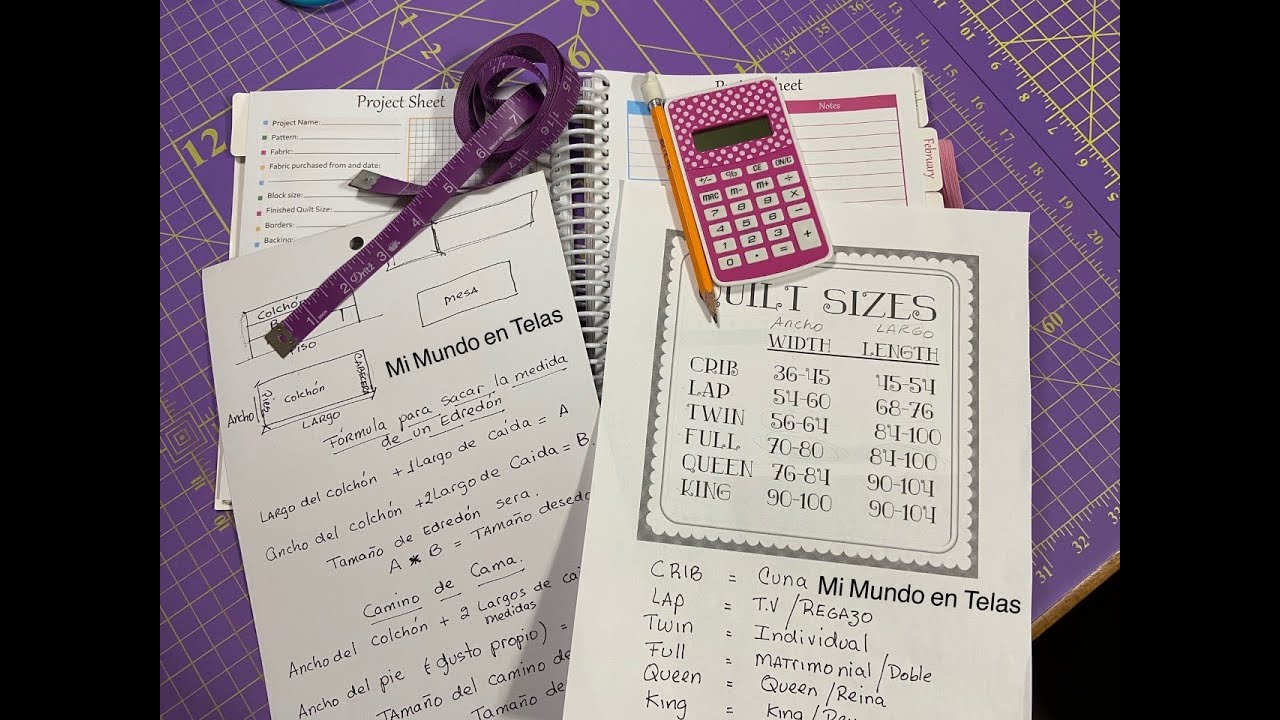 Project Sheet
Project Name:
Pattern:
Fabric:
Fabric purchased from and date:
Block size:
Finished Quilt Size:
Borders:
Backing:
Notes
February
12
colchón
MESA
Mi Mundo en Telas
colchón
CABECERA
Pies
Ancho
LARGO
Fórmula para sacar la medida
de un Edredón
LARGO del colchón + 1 Largo de caida = A
Ancho del colchón + 2 Largo de Caida = B.
Tamaño de Edredón sera.
A * B = TAmaño
Camino de Cama.
Ancho del colchón + 2 Largos de
medidas
Ancho del pie (gusto propio) =
TAmaño del camino de
Tamaño
+/- % CE ON/C
MRC M- M+ ÷
7 8 9 X
4 5 6 -
1 2 3 +
0 . =
QUILT SIZES
Ancho LARGO
WIDTH LENGTH
CRIB 36-45 45-54
LAP 54-60 68-76
TWIN 56-64 84-100
FULL 70-80 84-100
QUEEN 76-84 90-104
KING 90-100 90-104
CRIB = Cuna
Mi Mundo en Telas
LAP = T.V / REGAZO
Twin = Individual
Full = MATRIMONIAL / Doble
Queen = Queen / Reina
King = King /